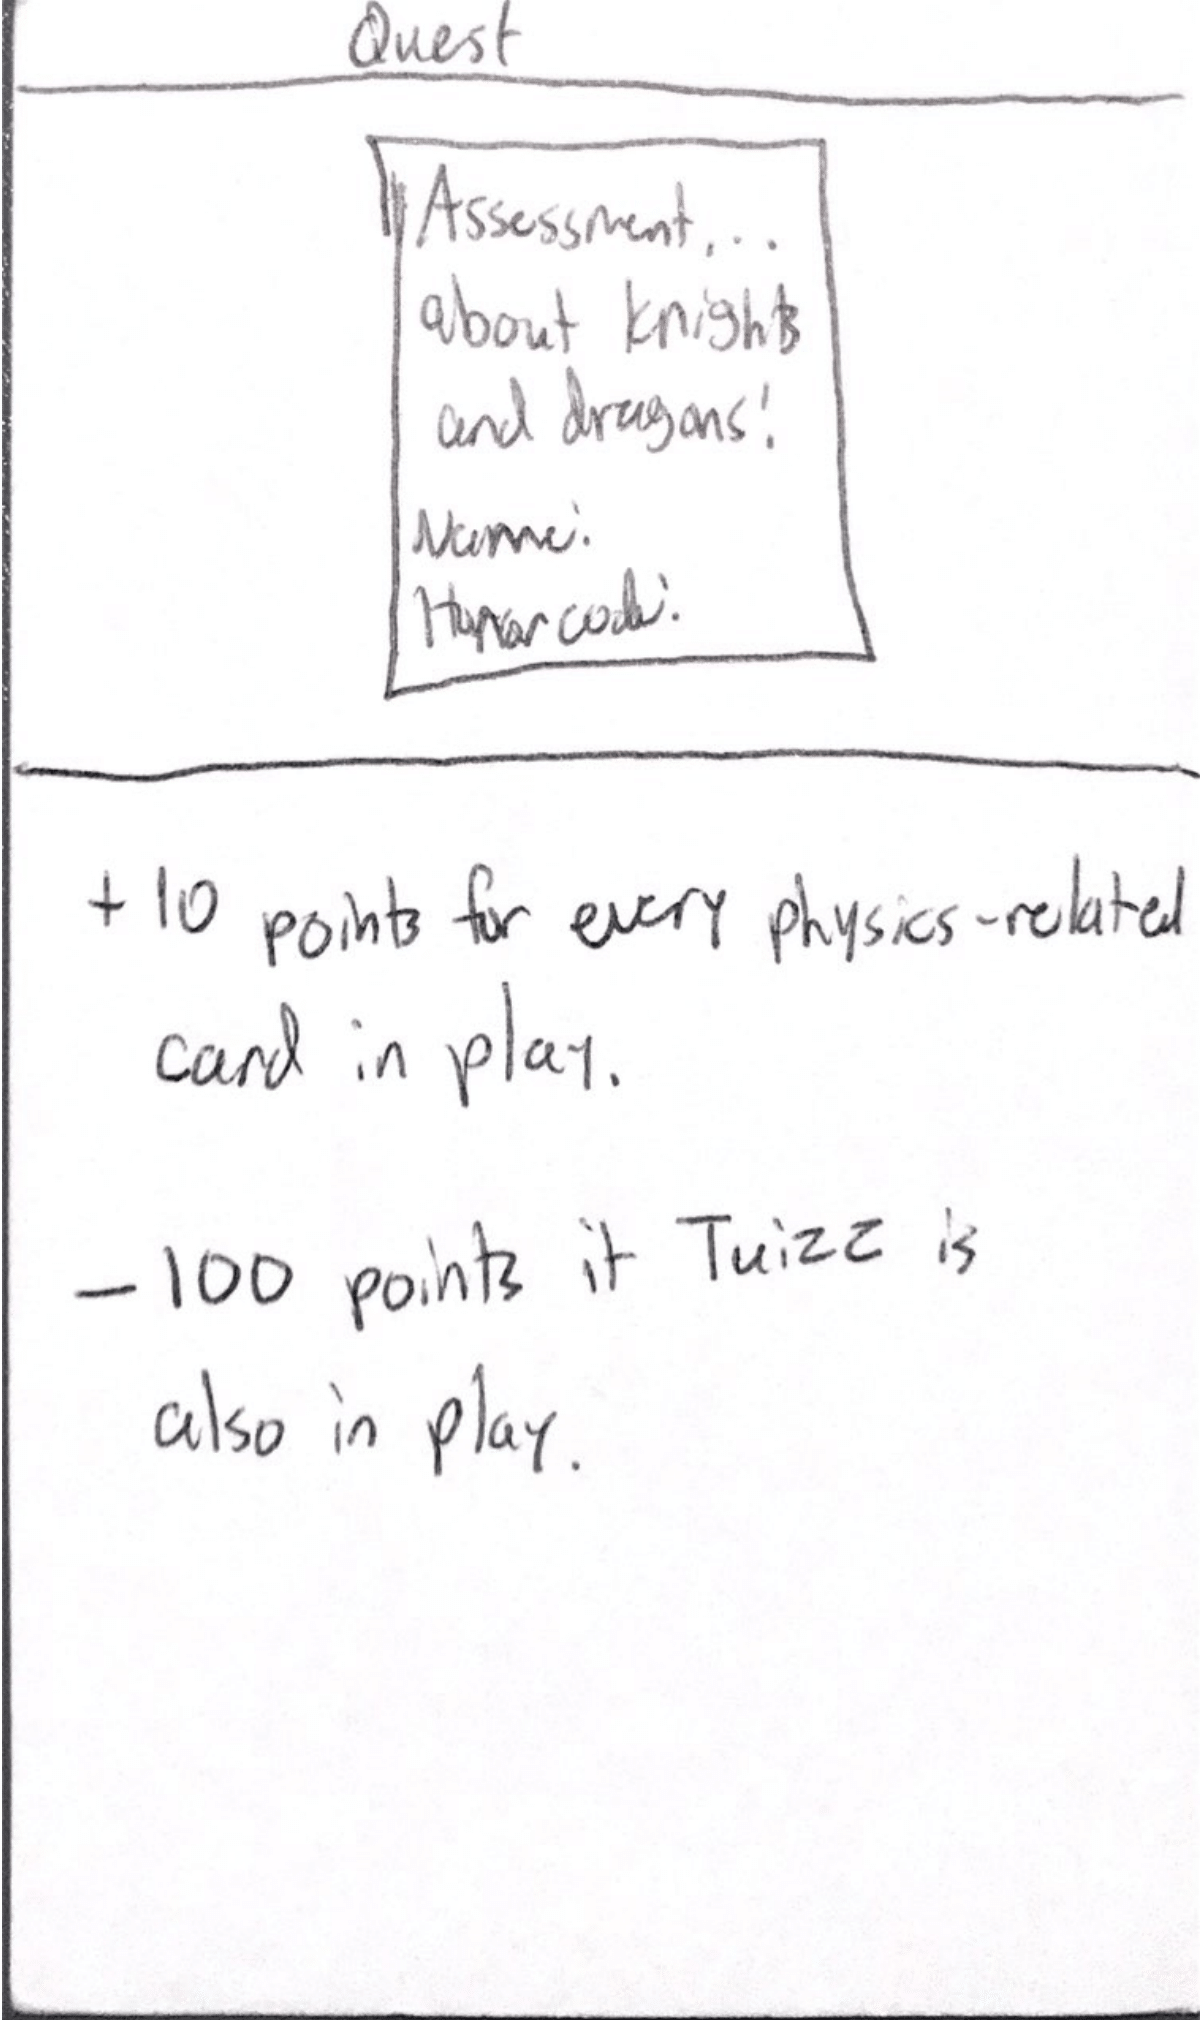 Quest
Assessment...
about knights
and dragons!
Name:
Honor code:
+10 points for every physics-related
card in play.
-100 points if Tuizz is
also in play.